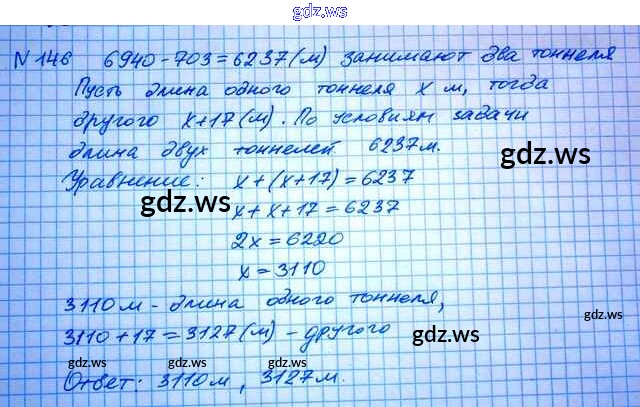 gdz.ws
N 146 6940-703=6237(м) занимают два тоннеля
Пусть длина одного тоннеля x м, тогда
другого x+17(м). По условиям задачи
длина двух тоннелей 6237м.
gdz.ws
Уравнение: x+(x+17)=6237
gdz.ws
x+x+17=6237
2x=6220
x=3110
3110м - длина одного тоннеля,
3110+17=3127(м) - другого
gdz.ws
gdz.ws gdz.ws gdz.ws
Ответ: 3110м, 3127м.